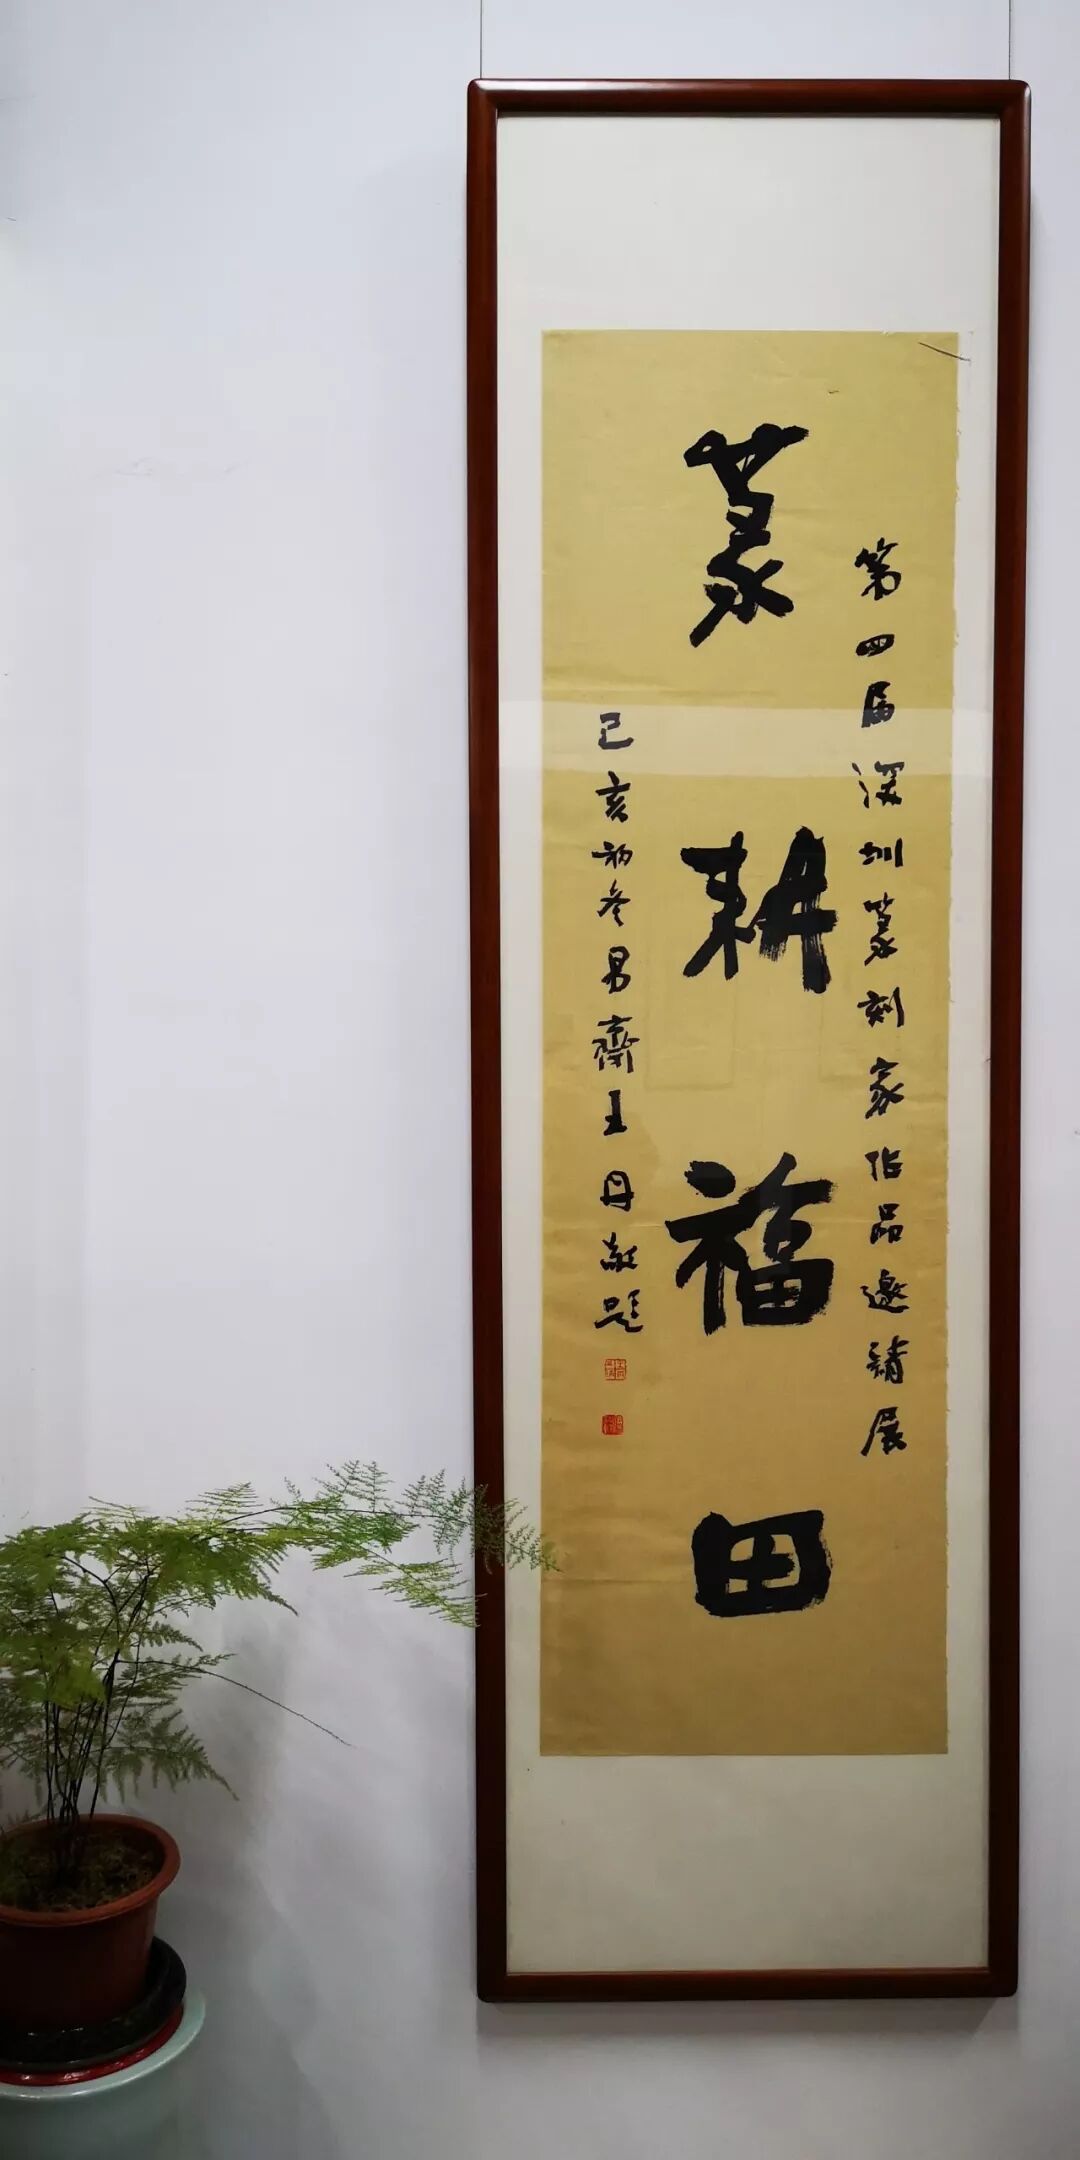 第四届深圳篆刻家作品邀请展
篆耕福田
己亥初冬易斋王丹敬题